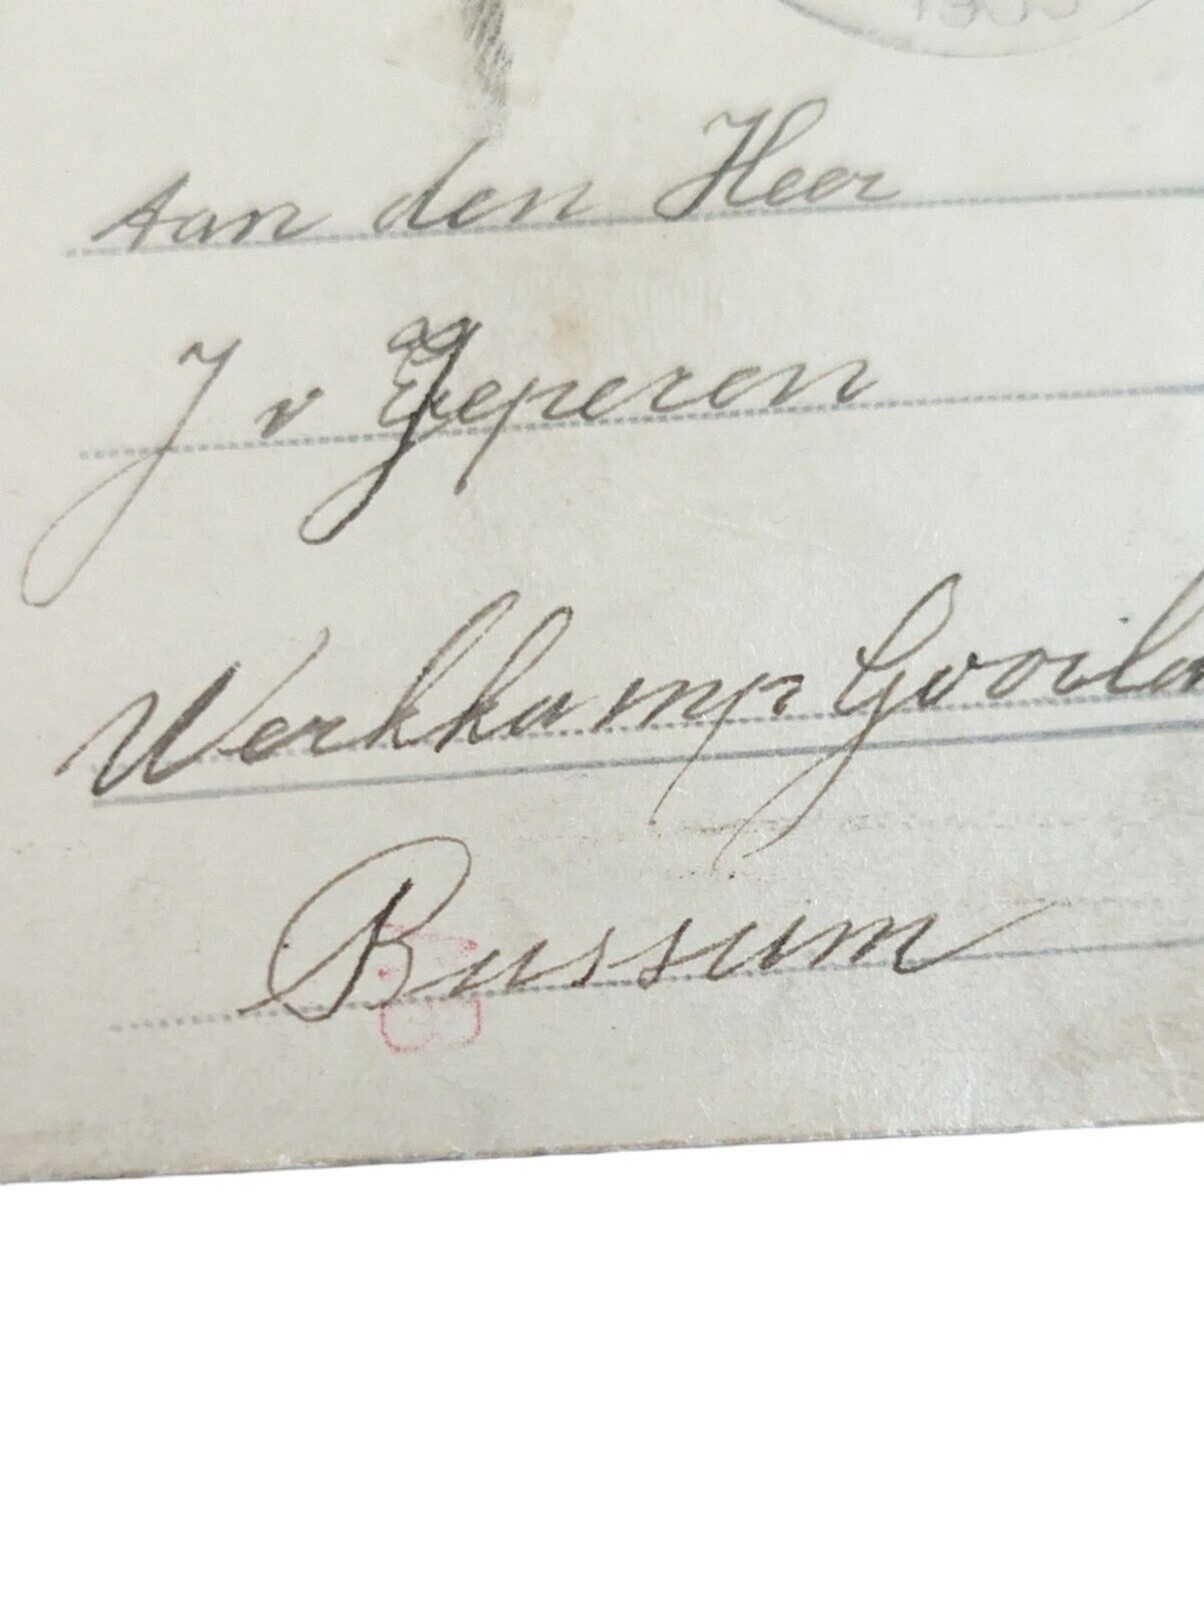 Aan den Heer
J v Ieperen
Werkkamp Gooila
Bussum